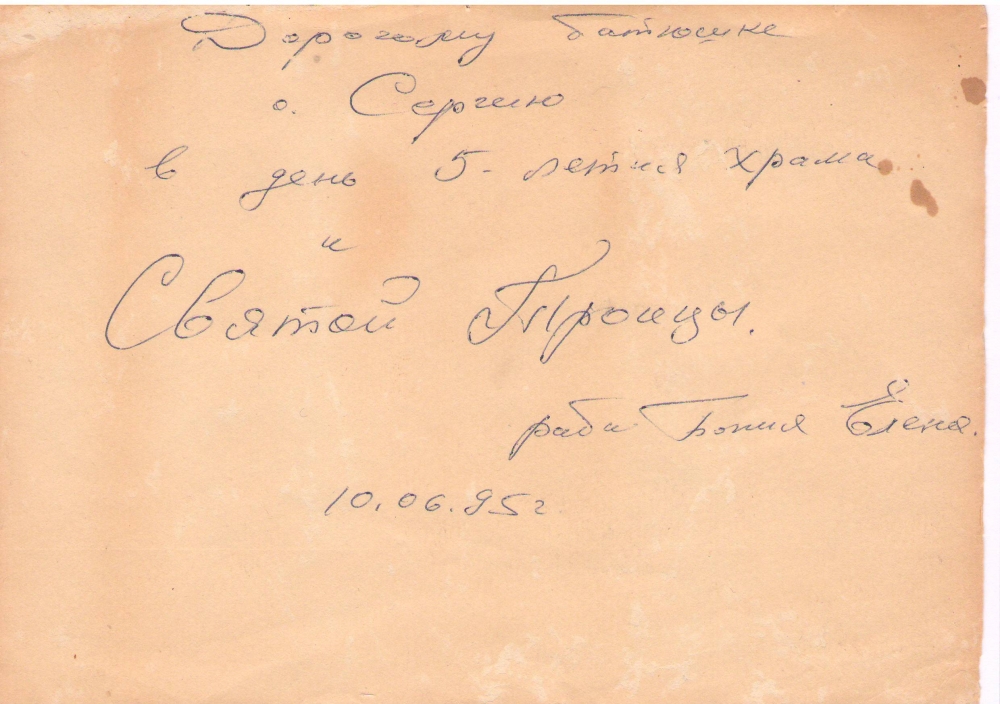 Дорогому батюшке
о. Сергию
в день 5-летия храма
и
Святой Троицы.
раба Божия Елена.
10.06.95г